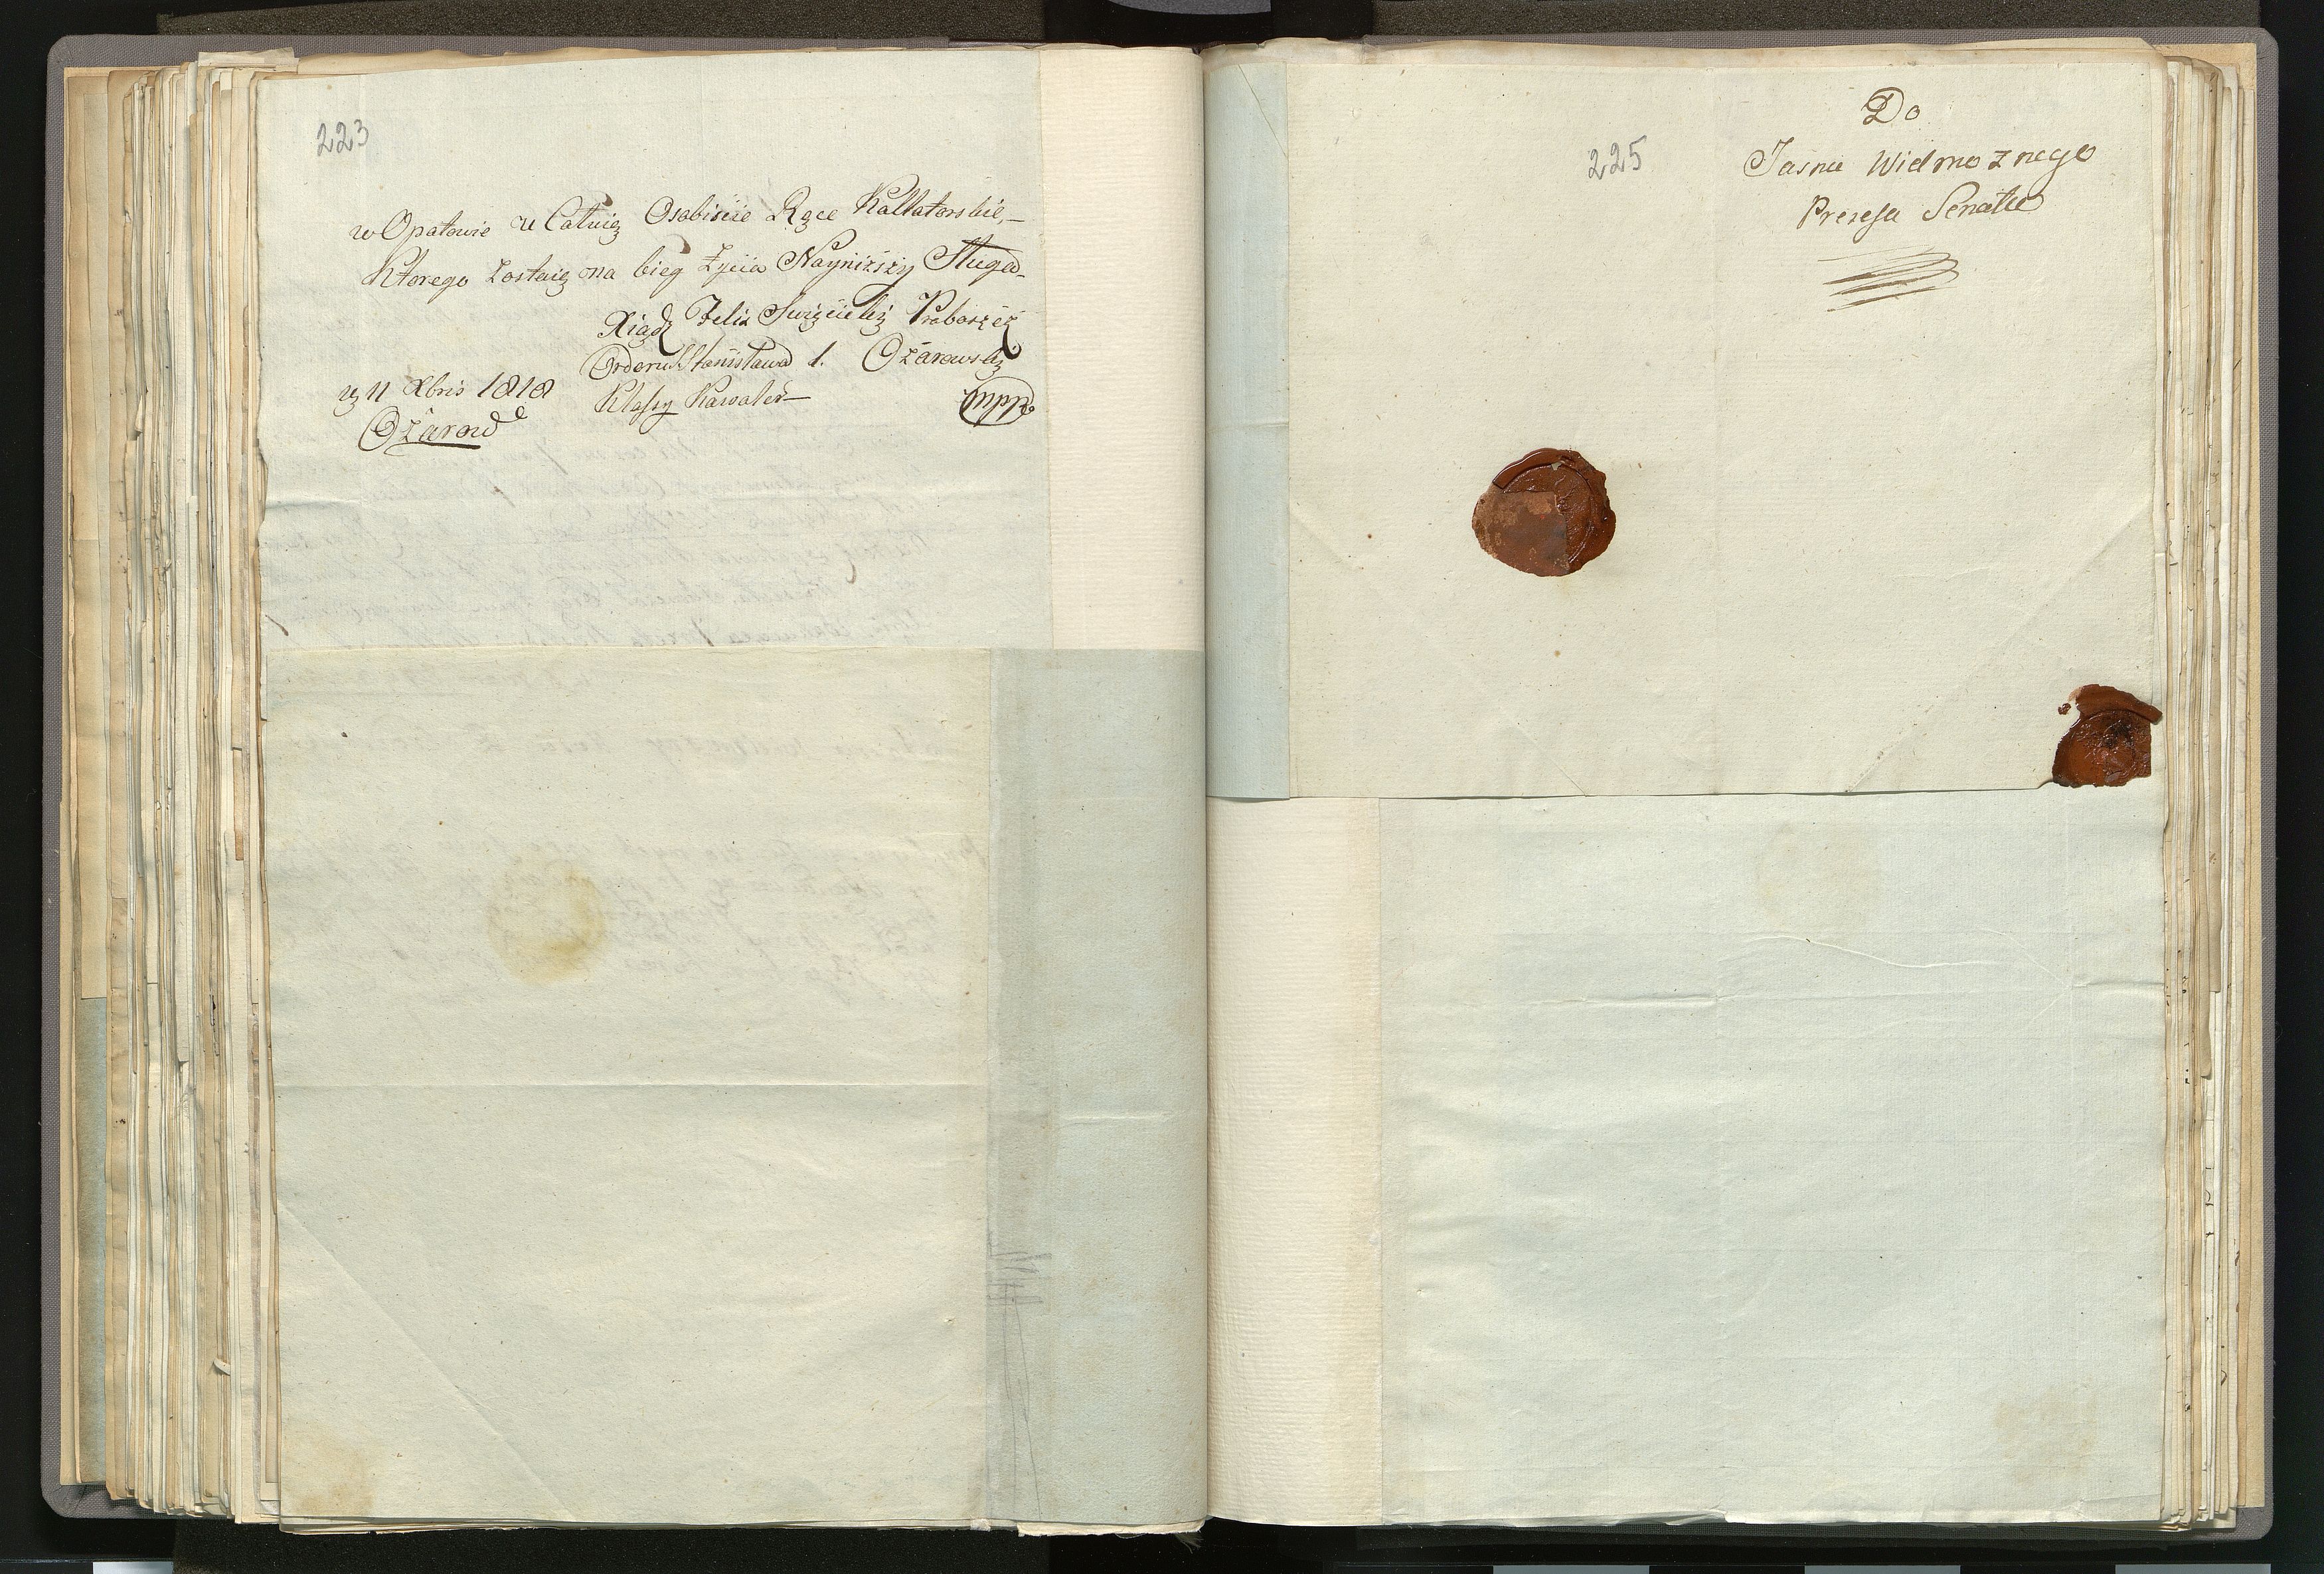 223
w Opatowie u Catuię Osobiście Ręce Kollatorskie,—
Ktorego Zostaię na bieg Życia Nayniższy Sługa—
Xiądz Felix Proboszcz
Orderu S Stanisława 1. Ożarowski
Klassy Kawaler— mpp
11 Xbris 1818
Ożarow
225
Do
Jasnie Wielmożnego
Prezesa Senatu